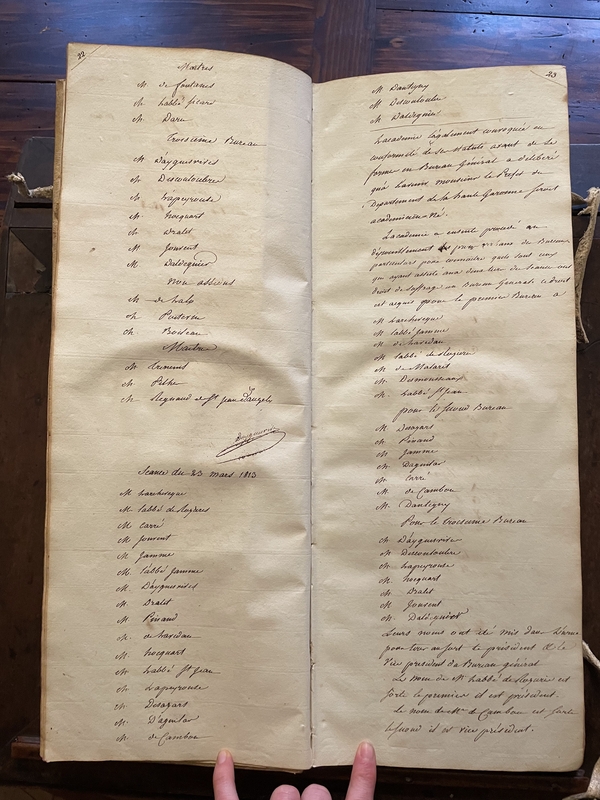 22
Maitres
M. de fontanes
M. Labbé sicard
M. Daru
Troisieme Bureau
M. Dayguesvives
M. Descouloubre
M. Lapeyrouse
M. hocquart
M. Dralet
M. Jouvent
M. Daldeguier
non assidus
M. de
M. Poitevin
M. Boileau
Maitres
M. Treneuil
M.
M. Regnaud de St jean d'angely
Seance du 23 mars 1813
M. Larcheveque
M. Labbé de Rozieres
M. Carré
M. Jouvent
M. Jamme
M. Labbé Jamme
M. Dayguesvives
M. Dralet
M. Pinaud
M. de
M. hocquart
M. Labbé St jean
M. Lapeyrouse
M. Desazars
M. D'aguilar
M. de Cambon
23
M. Dantigny
M. Descouloubre
M. Daldeguier
Lacademie legalement convoquée en
conformité de ses statuts avant de se
former en Bureau Général a deliberé
que monsieur le Prefet du
Departement de la haute Garonne seroit
academicien né.
Lacademie a ensuite procedé au
depouillement des de Bureaux
particuliers pour connaitre quels sont ceux
qui ayant assisté aux de seance ont
droit de suffrage au Bureau General; ce droit
est acquis pour le premier Bureau a
M. Larcheveque
M. Labbé Jamme
M. de
M. Labbé de Rozieres
M. de Malaret
M. Desmousseaux
M. Labbé St Jean
pour le second Bureau
M. Desazars
M. Pinaud
M. Jamme
M. Daguilar
M. Carré
M. de Cambon
M. Dantigny
Pour le troisieme Bureau
M. Dayguesvives
M. Descouloubre
M. Lapeyrouse
M. hocquart
M. Dralet
M. Jouvent
M. Daldeguier
Leurs noms ont été mis dans
pour tirer au sort le président & le
Vice president du Bureau général
Le nom de Mr Labbé de Rozieres est
sorti le premier il est président.
Le nom de Mr de Cambon est sorti
le second il est vice président.